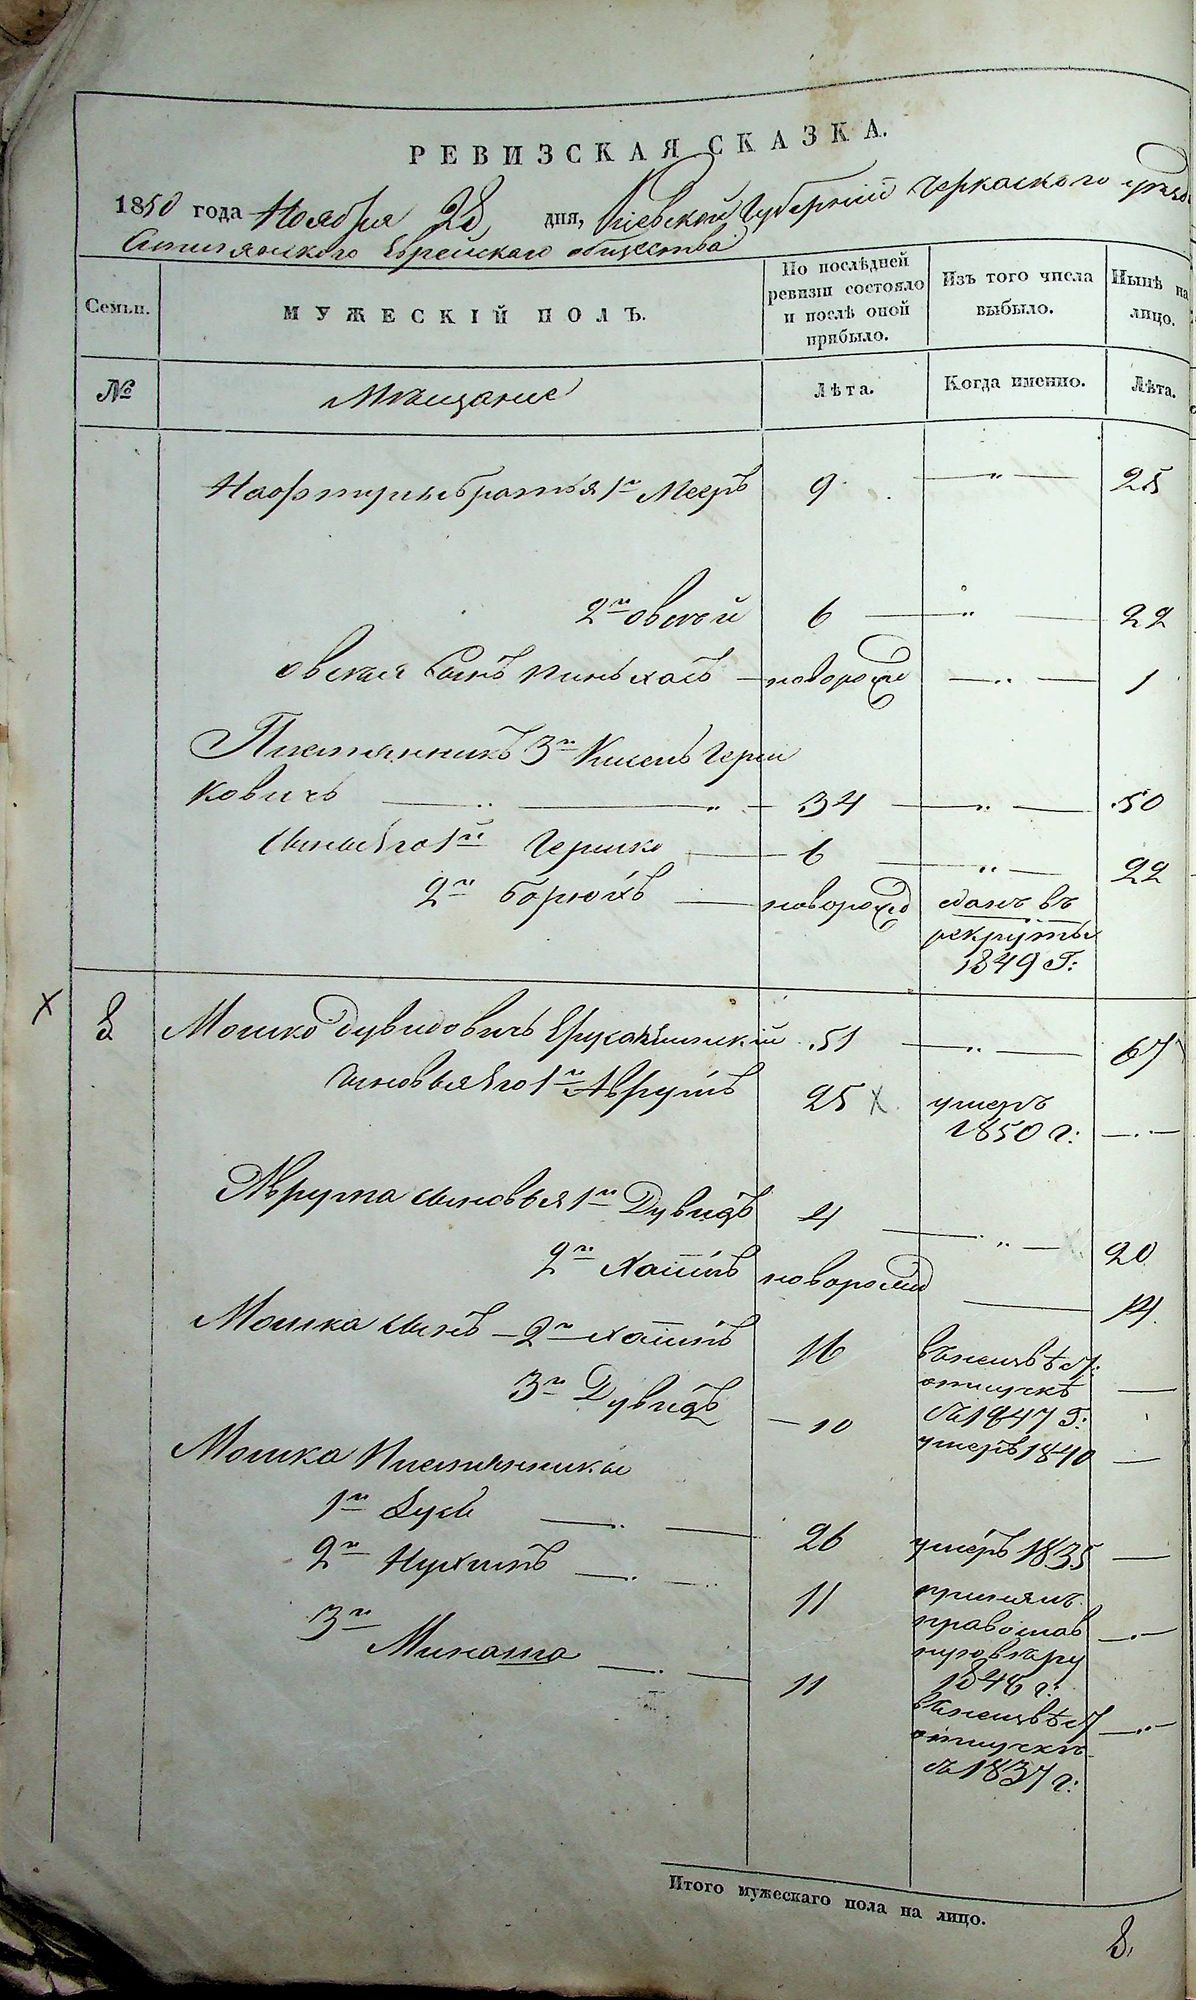 РЕВИЗСКАЯ СКАЗКА.
1850 года Ноября 28 дня, Киевской Губерніи Черкаского уѣзда
Еврейскаго общества
Семьи. МУЖЕСКІЙ ПОЛЪ. По послѣдней ревизіи состояло и послѣ оной прибыло. Изъ того числа выбыло. Нынѣ на лицо.
№ Мѣщане Лѣта. Когда именно. Лѣта.
братья 1й Мееръ 9 — " — 25
2й Овсѣй 6 — " — 22
Овсѣя Сынъ Пиньхасъ — новорожд — " — 1
Племянникъ 3й Кисель Герш
ковичъ — " — " — 34 — " — 50
Сыны Его 1й Гершко — 6 — " — 22
2й Борюхъ — новорожд сданъ въ
рекруты
1849 Г:
8 Мошко Дувидовичъ 51 — " — 67
Сыновья Его 1й Аврумъ 25 х умеръ
1850 г: — " —
Аврума Сыновья 1й Дувидъ 4 — " — 20
2й Хаимъ новорожд — 14
Мошка Сынъ — 2й Хаимъ 16 въ неизвѣст:
отлучкѣ —
съ 1847 Г:
3й Дувидъ — 10 умеръ 1840 —
Мошка Племянники
1й — " — 26 умеръ 1835 —
2й Нухимъ — " — 11 принялъ
православ — " —
ную вѣру
1846 г:
3й Минаша — " — 11 въ неизвѣст — " —
отлучкѣ
съ 1837 г:
Итого мужескаго пола на лицо.
8.